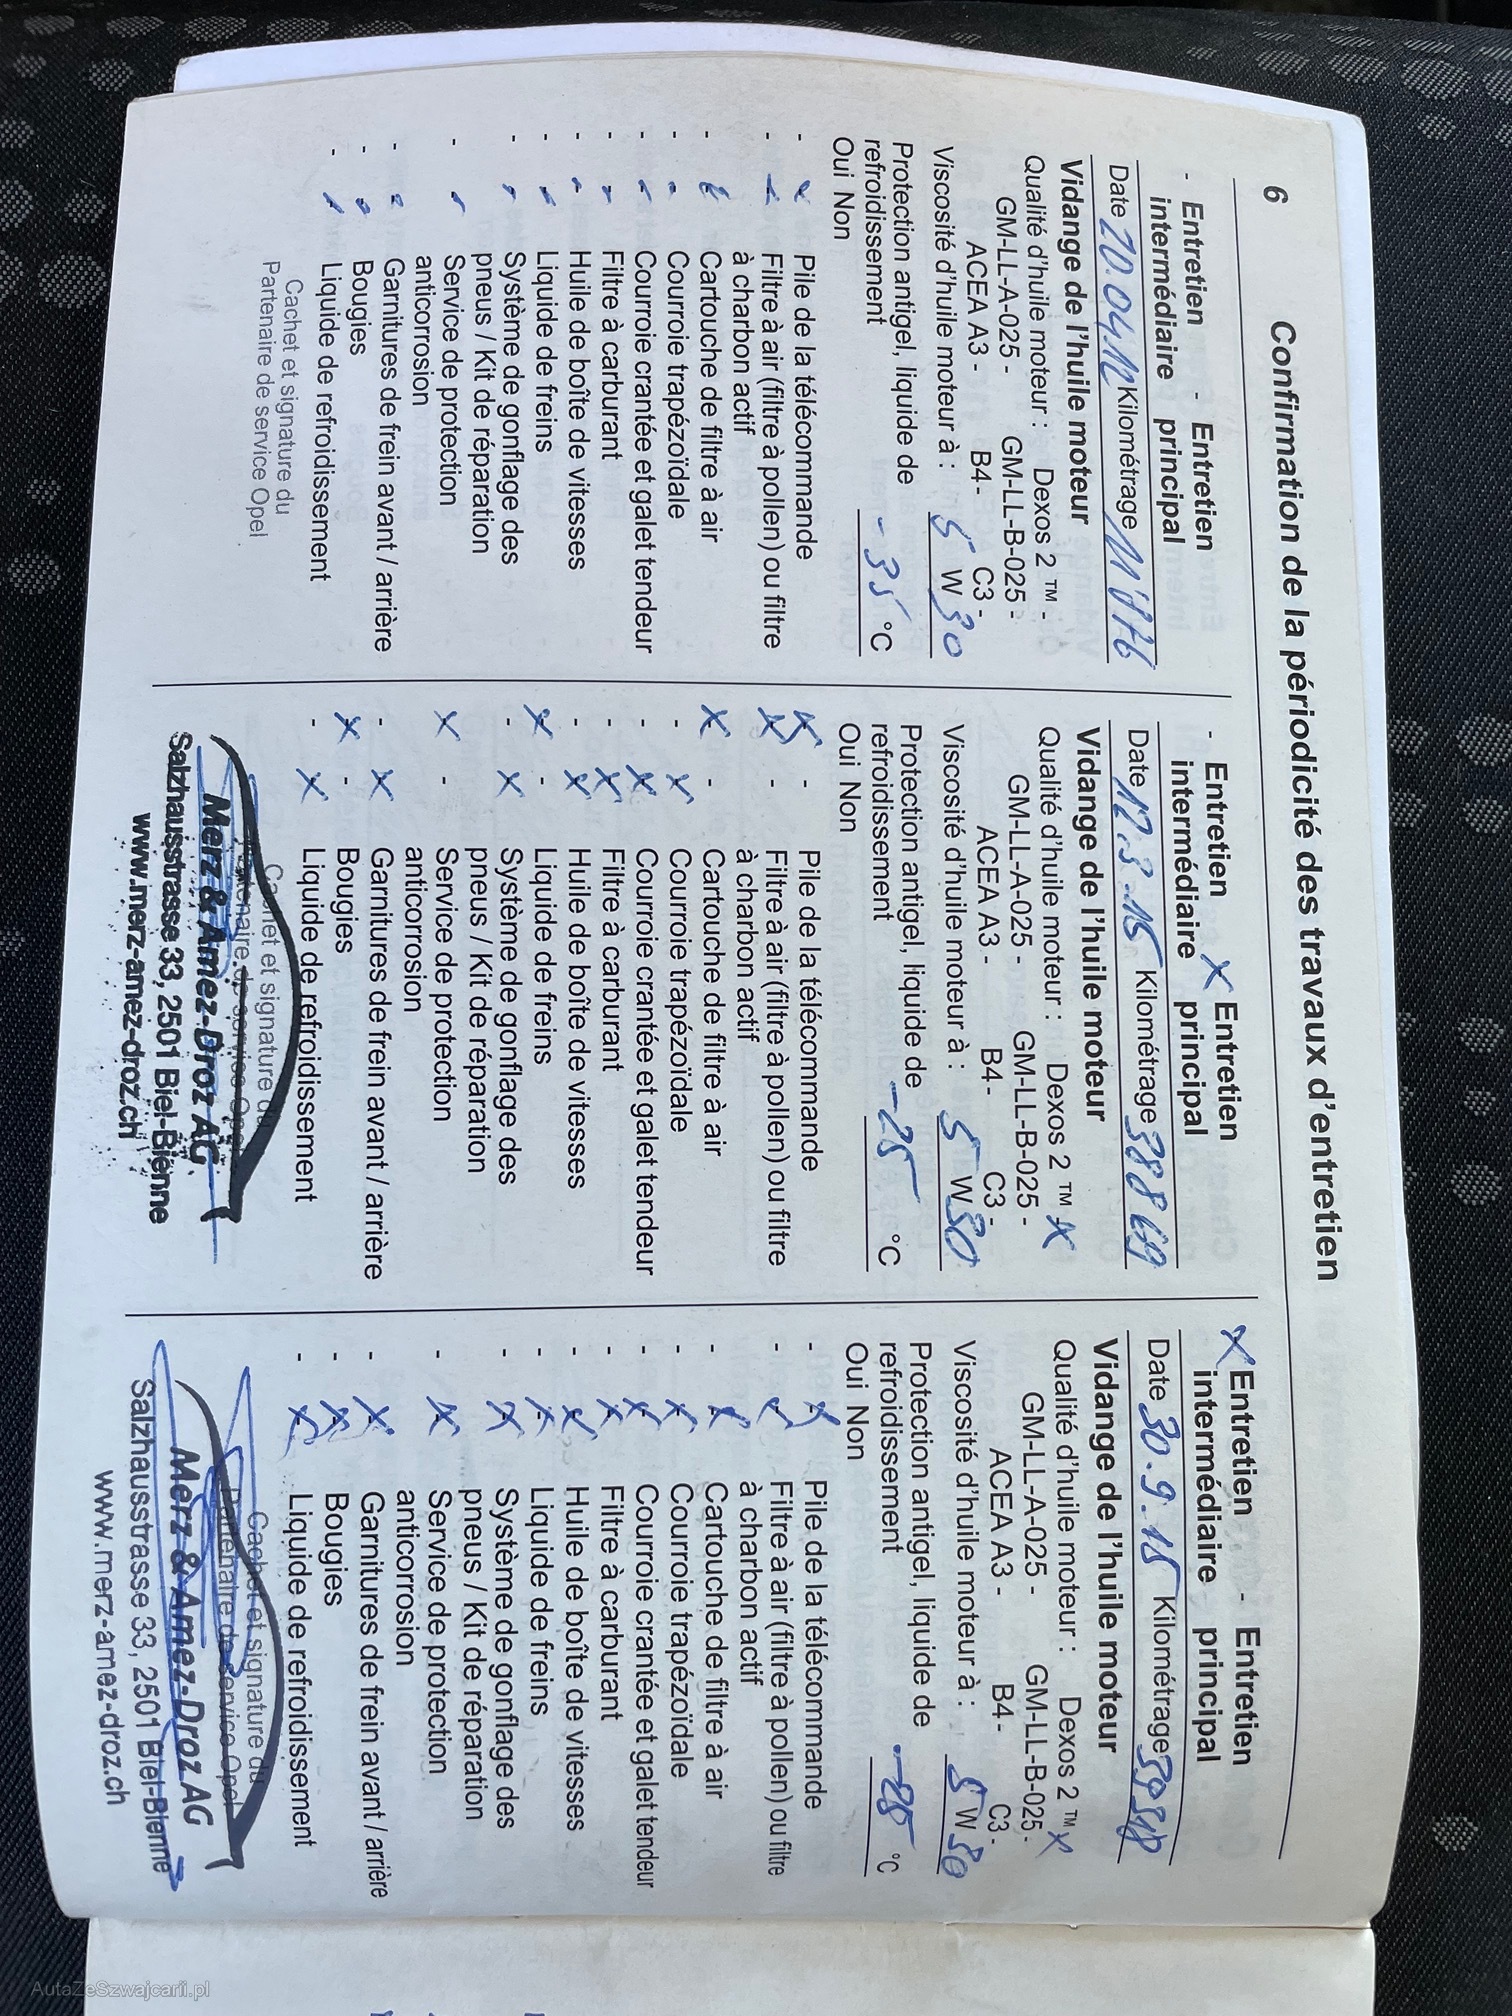 6 Confirmation de la périodicité des travaux d'entretien
- Entretien - Entretien
intermédiaire principal
Date 20.04.12 Kilométrage
Vidange de l'huile moteur
Qualité d'huile moteur : Dexos 2 ™ -
GM-LL-A-025 - GM-LL-B-025 -
ACEA A3 - B4 - C3 -
Viscosité d'huile moteur à : 5 W 30
Protection antigel, liquide de
refroidissement - 35 °C
Oui Non
- Pile de la télécommande
- Filtre à air (filtre à pollen) ou filtre
à charbon actif
- Cartouche de filtre à air
- Courroie trapézoïdale
- Courroie crantée et galet tendeur
- Filtre à carburant
- Huile de boîte de vitesses
- Liquide de freins
- Système de gonflage des
pneus / Kit de réparation
- Service de protection
anticorrosion
- Garnitures de frein avant / arrière
- Bougies
- Liquide de refroidissement
Cachet et signature du
Partenaire de service Opel
- Entretien X Entretien
intermédiaire principal
Date 12.3.15 Kilométrage 38869
Vidange de l'huile moteur
Qualité d'huile moteur : Dexos 2 ™ X
GM-LL-A-025 - GM-LL-B-025 -
ACEA A3 - B4 - C3 -
Viscosité d'huile moteur à : 5 W 30
Protection antigel, liquide de
refroidissement -25 °C
Oui Non
X - Pile de la télécommande
X - Filtre à air (filtre à pollen) ou filtre
à charbon actif
X - Cartouche de filtre à air
- X Courroie trapézoïdale
- X Courroie crantée et galet tendeur
- X Filtre à carburant
- X Huile de boîte de vitesses
X - Liquide de freins
- X Système de gonflage des
pneus / Kit de réparation
X - Service de protection
anticorrosion
- X Garnitures de frein avant / arrière
X - Bougies
- X Liquide de refroidissement
Cachet et signature du
Partenaire de service Opel
Merz & Amez-Droz AG
Salzhausstrasse 33, 2501 Biel-Bienne
www.merz-amez-droz.ch
X Entretien - Entretien
intermédiaire principal
Date 30.9.15 Kilométrage
Vidange de l'huile moteur
Qualité d'huile moteur : Dexos 2 ™ X
GM-LL-A-025 - GM-LL-B-025 -
ACEA A3 - B4 - C3 -
Viscosité d'huile moteur à : 5 W 30
Protection antigel, liquide de
refroidissement °C
Oui Non
- X Pile de la télécommande
- X Filtre à air (filtre à pollen) ou filtre
à charbon actif
- X Cartouche de filtre à air
- X Courroie trapézoïdale
- X Courroie crantée et galet tendeur
- X Filtre à carburant
- X Huile de boîte de vitesses
- X Liquide de freins
- X Système de gonflage des
pneus / Kit de réparation
- X Service de protection
anticorrosion
- X Garnitures de frein avant / arrière
- X Bougies
- X Liquide de refroidissement
Cachet et signature du
Partenaire de service Opel
Merz & Amez-Droz AG
Salzhausstrasse 33, 2501 Biel-Bienne
www.merz-amez-droz.ch
AutaZeSzwajcarii.pl